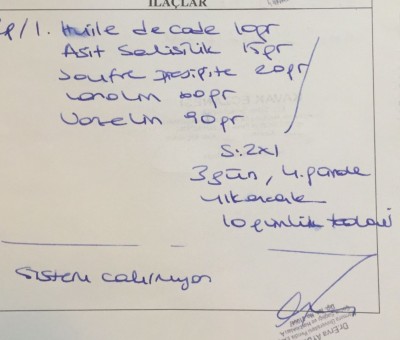 İLAÇLAR
Rp/1. Huile de cade 10gr
Asit Salisilik 15gr
Soufre presipite 20gr
Lanolin 100gr
Vazelin 90gr
S: 2x1
3 gün, 4. günde
yıkanacak
10 günlük tedavi
Sistem çalışmıyor